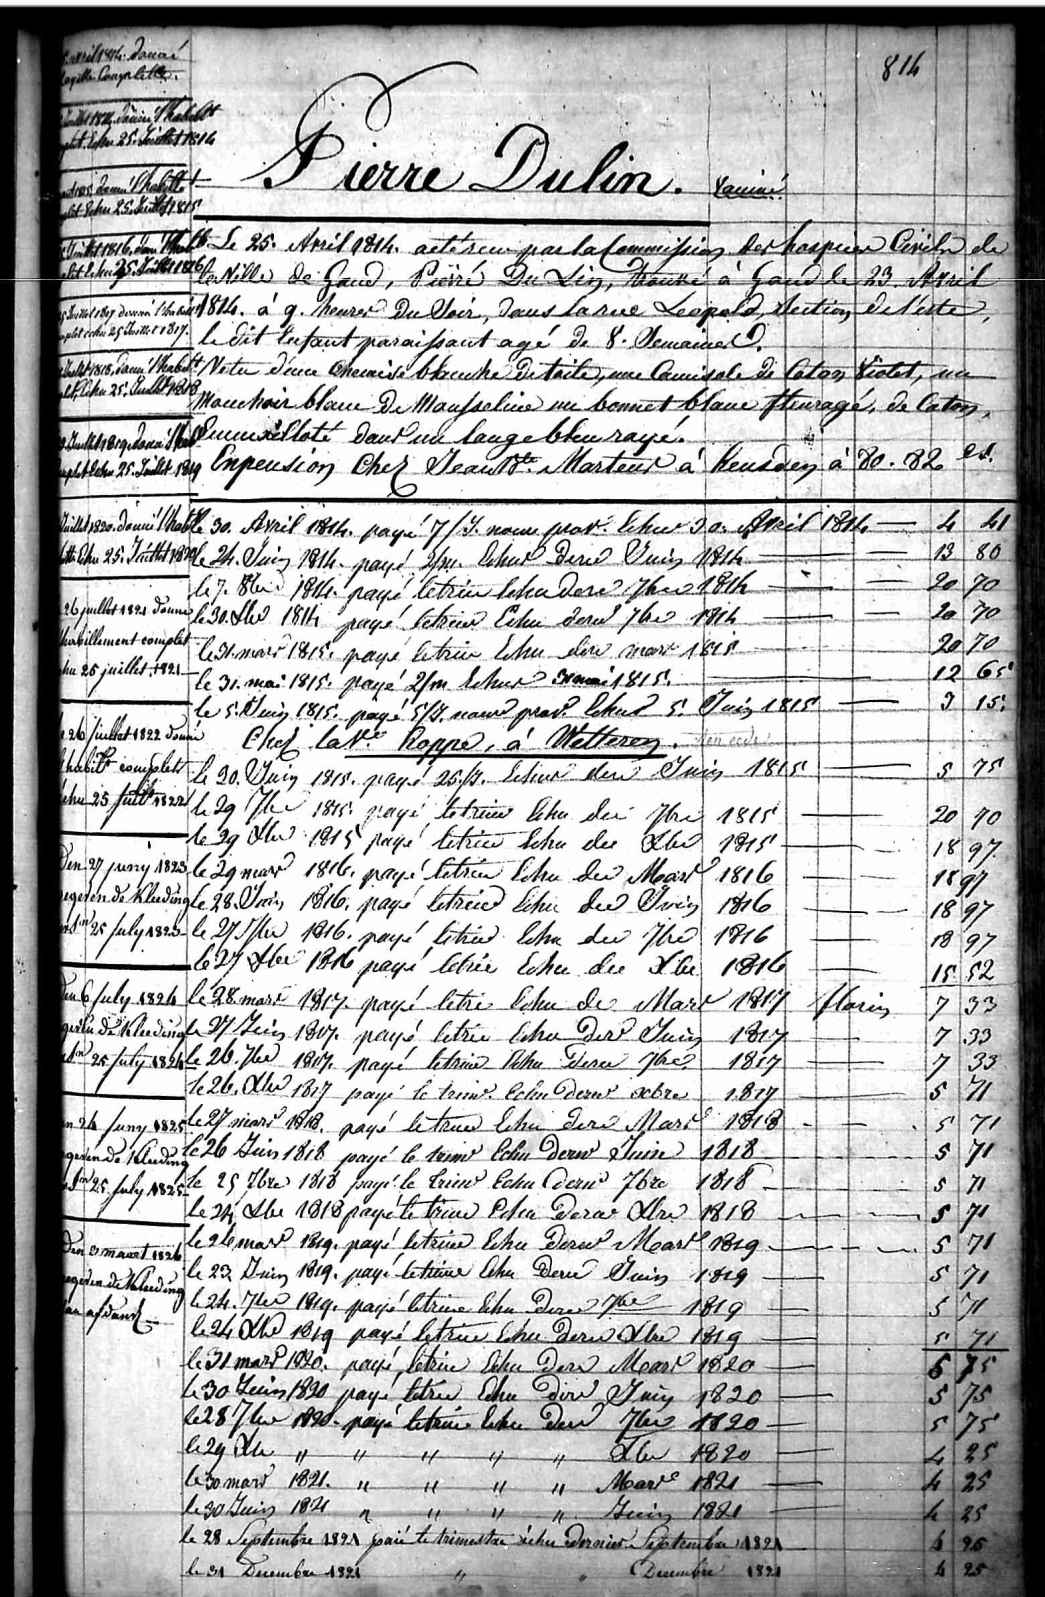 814
Pierre Dulin. Vacciné
Le 25. Avril 1814. a été reçu par la Commission des hospices Civils de
la Ville de Gand, Pierre Du Lin, trouvé à Gand le 23 Avril
1814. à 9. heures Du Soir, dans la rue Leopold, Section de l'este,
le dit Enfant paraissant agé de 8. Semaines.
Vetu d'une Chemise blanche de toile, une Camisole de Coton Violet, un
Mouchoir blanc De Mousseline un bonnet blanc fleuragé, de Coton,
Emmailloté dans un lange bleu rayé.
En pension Chez Jean Bte. Martens à Heusden à 80. 82 cs.
avril 1814. donné
layette Complette.
Juillet 1814. donné l'habillt
plet. Echu 25. Juillet 1814
donné l'habillt
plet Echu 25. Juillet 1815
Juillet 1816. donné l'habillt
plet Echu 25. Juillet 1816
25 Juillet 1817 donné l'habillt
plet échu 25 Juillet 1817.
Juillet 1818, donné l'habillt
plet, Echu 25. Juillet 1818
Juillet 1819 donné l'habillt
plet Echu 25. Juillet 1819
Juillet 1820. donné l'habillt
plett Echu 25. Juillet 1820
26 juillet 1821 donné
habillement complet
chu 25 juillet 1821
le 26 juillet 1822 donné
l'habillt complett
échu 25 juillt 1822
Den 27 juny 1823
gegeven de Kleeding
25 july 1823
Den 6 july 1824
gegeven de Kleeding
25 july 1824
en 24 juny 1825
gegeven de Kleeding
25 july 1825
Den 3 maart 1826
gegeven de Kleeding
le 30. Avril 1814. payé 7/J. nourr prov. Echus 30. Avril 1814 — 4 41
le 24. Juin 1814. payé 2/m. Echus Dern Juin 1814 — 13 80
le 7. 8bre 1814. payé le trim Echu dern 7bre 1814 — 20 70
le 30. Xbr 1814 payé le trim Echu dern 7bre 1814 — 20 70
le 31. mars 1815. payé le trim Echu dern mars 1815 — 20 70
le 31. mai 1815. payé 2/m Echus 31 mai 1815. — 12 65
le 5. Juin 1815. payé 5/J. nourr prov. Echus 5. Juin 1815 — 3 15.
Chez la Ve. Hoppe, à Wetteren.
le 30. Juin 1815. payé 25/J. Echus dern Juin 1815 — 5 75
le 29 7bre 1815. payé le trim Echu der 7bre 1815 — 20 70
le 29 Xbre 1815 payé le trim Echu der Xbre 1815 — 18 97.
le 29 mars 1816. payé le trim Echu der Mars 1816 — 18 97
le 28. Juin 1816. payé le trim Echu der Juin 1816 — 18 97
le 27 7bre 1816. payé le trim Echu der 7bre 1816 — 18 97
le 27 Xbre 1816 payé le trim Echu der Xbre 1816 — 15 52
le 28 mars 1817. payé le trim Echu de Mars 1817 florins 7 33
le 27 Juin 1817. payé le trim Echu der Juin 1817 — 7 33
le 26. 7bre 1817. payé le trim Echu Dern 7bre 1817 — 7 33
le 26. Xbre 1817 payé le trimr. Echu dernr xbre 1817 — 5 71
le 27 mars 1818. payé le trim Echu dern Mars 1818 — 5 71
le 26 Juin 1818 payé le trimr Echu Dernr Juin 1818 — 5 71
le 25 7bre 1818 payé le trimr Echu Dernr 7bre 1818 — 5 71
le 24 Xbre 1818 payé le trim Echu Dernr Xbre 1818 — 5 71
le 26 mars 1819. payé le trim Echu Dernr Mars 1819 — 5 71
le 23 Juin 1819. payé le trim Echu Dern Juin 1819 — 5 71
le 24. 7bre 1819. payé le trim Echu Dern 7bre 1819 — 5 71
le 24 Xbre 1819 payé le trim Echu Dern Xbre 1819 — 5 71
le 31 mars 1820. payé, le trim Echu Dern Mars 1820 — 6 75
le 30 Juin 1820 payé le trim Echu Dern Juin 1820 — 5 75
le 28 7bre 1820. payé le trim Echu Dern 7bre 1820 — 5 75
le 29 Xbre " " " " " Xbre 1820 — 4 25
le 30 mars 1821. " " " " " Mars 1821 — 4 25
le 30 Juin 1821 " " " " Juin 1821 — 4 25
le 28 Septembre 1821 paié le trimestre échu Dernier Septembre 1821 4 25
le 31 Decembre 1821 " " Decembre 1821 4 25